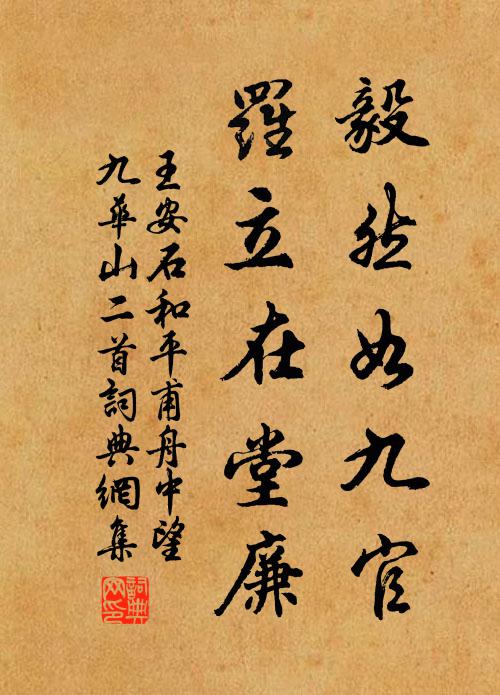 毅然如九官
羅立在堂廉
王安石和平甫舟中望
九華山二首詞典網集
詞典網印